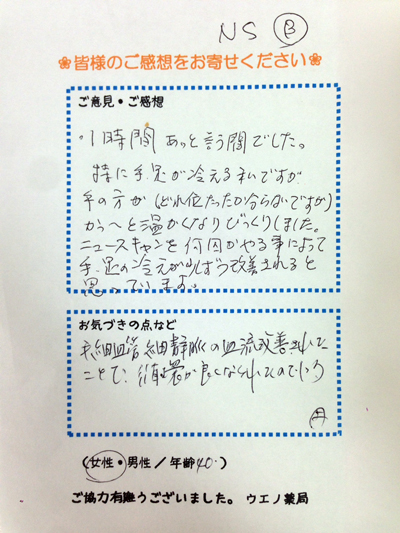 NS B
❀皆様のご感想をお寄せください❀
ご意見・ご感想
・1時間あっと言う間でした。
特に手足が冷える私ですが
手の方が(どれ位たったか分らないですが)
かぁ〜と温かくなりびっくりしました。
ニュースキャンを何回かやる事によって
手足の冷えが少しずつ改善されると
思っています。
お気づきの点など
毛細血管細静脈の血流改善
ことで、
(女性・男性/年齢40.)
ご協力有難うございました。 ウエノ薬局